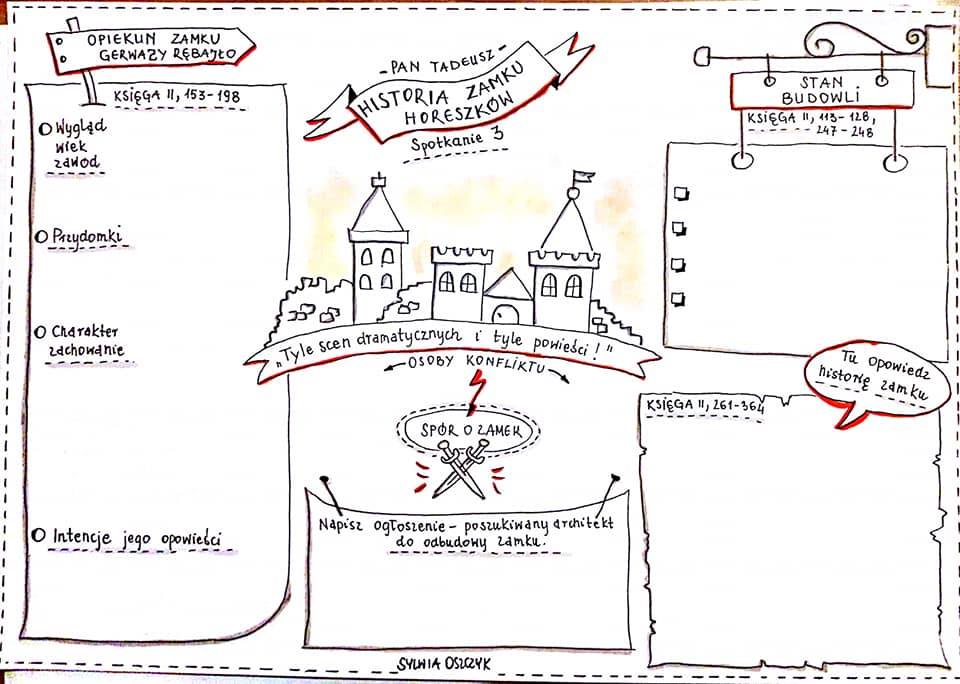 OPIEKUN ZAMKU
GERWAZY RĘBAJŁO
KSIĘGA II, 153-198
Wygląd
wiek
zawód
Przydomki
Charakter
zachowanie
Intencje jego opowieści
- PAN TADEUSZ -
HISTORIA ZAMKU
HORESZKÓW
Spotkanie 3
"Tyle scen dramatycznych i tyle powieści!"
OSOBY KONFLIKTU
SPÓR O ZAMEK
Napisz ogłoszenie - poszukiwany architekt
do odbudowy zamku.
STAN
BUDOWLI
KSIĘGA II, 113-128,
247-248
Tu opowiedz
historię zamku
KSIĘGA II, 261-364
SYLWIA OSZCZYK